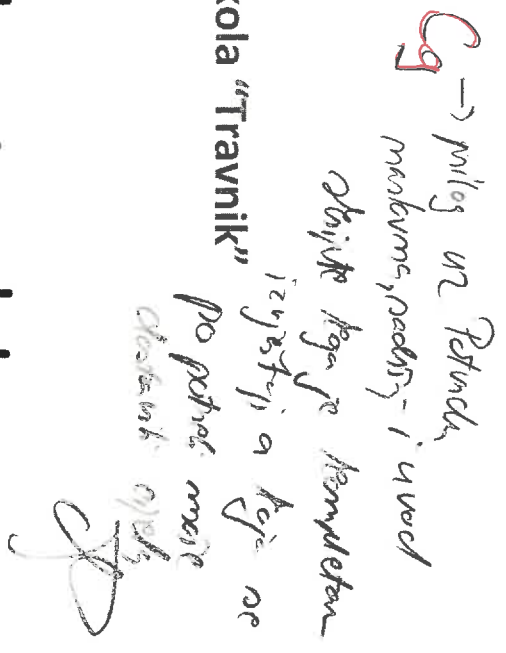 C9 → prilog uz Potvrdu,
naslovna, sadržaj i uvod
studije koja je kompletan
izvještaj a koja se
po potrebi može
dostaviti
kola “Travnik”